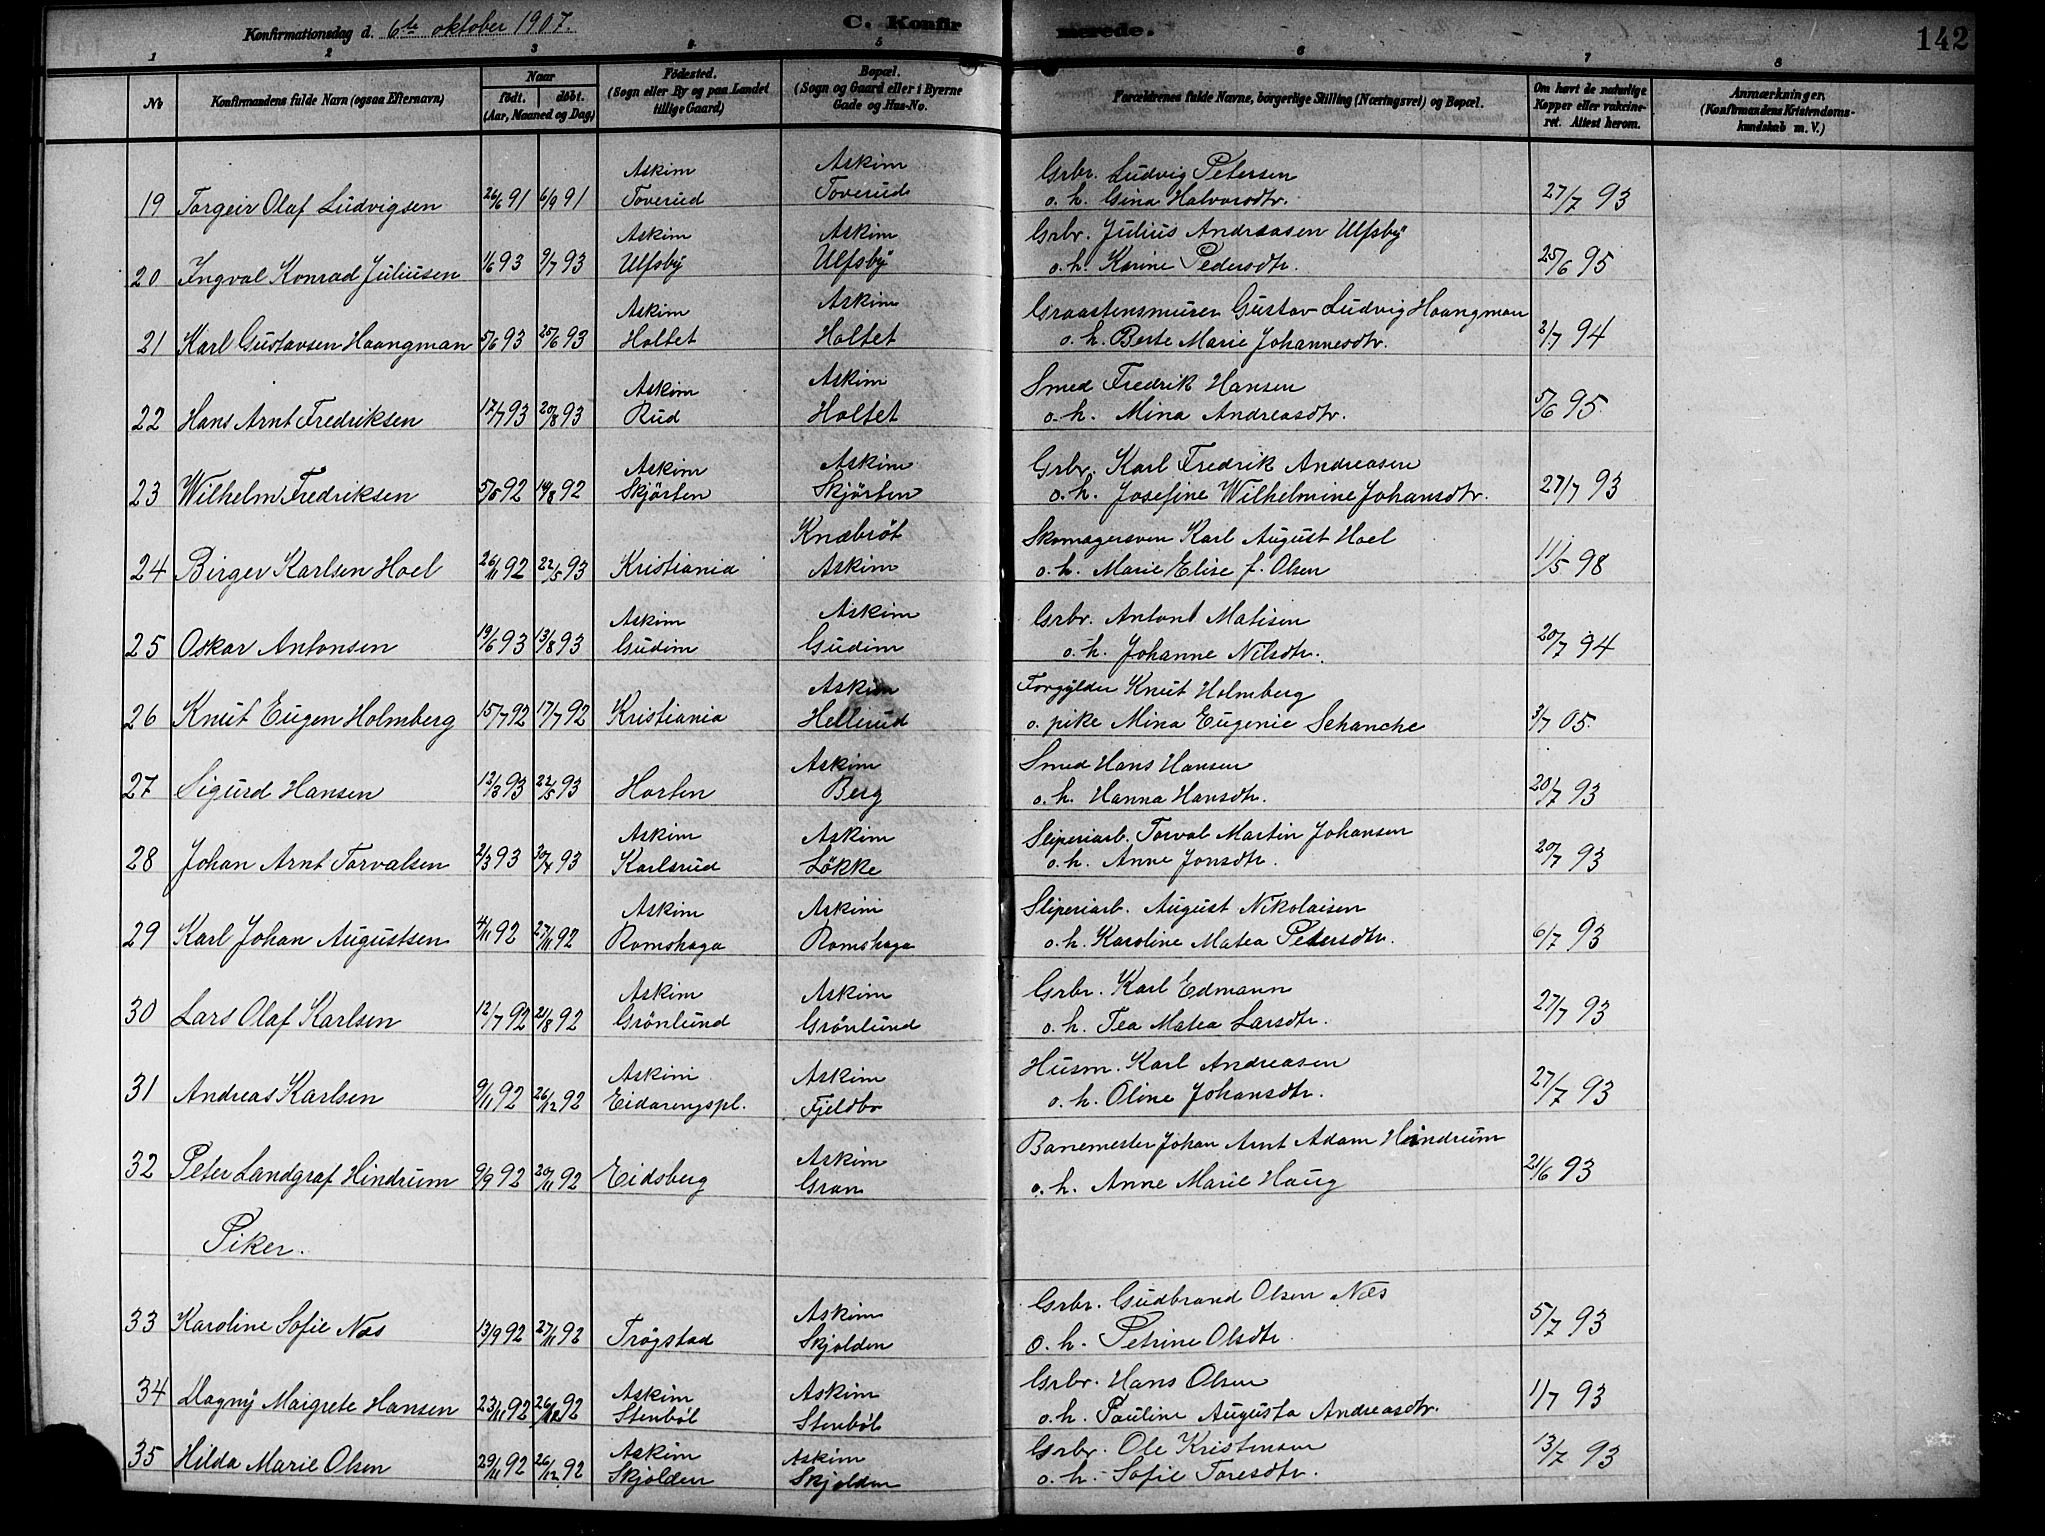 Konfirmationsdag d. 6te oktober 1907. C. Konfirmerede. 142
1 2 3 4 5 6 7 8
No
Konfirmandens fulde Navn (ogsaa Efternavn)
Naar
født. døbt.
(Aar, Maaned og Dag)
Fødested.
(Sogn eller By og paa Landet
tillige Gaard)
Bopæl.
(Sogn og Gaard eller i Byerne
Gade og Hus-No.
Forældrenes fulde Navne, borgerlige Stilling (Næringsvei) og Bopæl.
Om havt de naturlige
Kopper eller vakcine-
ret. Attest herom.
Anmærkninger.
(Konfirmandens Kristendoms-
kundskab m. V.)
Askim Askim Grbr. Ludvig Petersen
19 Torgeir Olaf Ludvigsen 26/6 91 6/9 91 Toverud Toverud o. h. Gina Halvorsdtr. 27/7 93
Askim Askim Grbr. Julius Andreasen Ulfsby
20 Ingval Konrad Juliusen 1/6 93 9/7 93 Ulfsby Ulfsby o. h. Karine Pedersdtr. 25/6 95
Askim Askim Graastensmurer Gustav Ludvig Haangman
21 Karl Gustavsen Haangman 5/6 93 25/6 93 Holtet Holtet o. h. Berte Marie Johannesdtr. 2/7 94
Askim Askim Smed Fredrik Hansen
22 Hans Arnt Fredriksen 17/7 93 20/8 93 Rud Holtet o. h. Mina Andreasdtr. 5/6 95
Askim Askim Grbr. Karl Fredrik Andreasen
23 Wilhelm Fredriksen 5/5 92 14/8 92 Skjörten Skjörten o. h. Josefine Wilhelmine Johansdtr. 27/7 93
Knæbröt Skomagersven Karl August Hoel
24 Birger Karlsen Hoel 26/11 92 22/5 93 Kristiania Askim o. h. Marie Elise f. Olsen 11/5 98
Askim Askim Grbr. Anton Matisen
25 Oskar Antonsen 19/6 93 13/8 93 Gudim Gudim o. h. Johanne Nilsdtr. 20/7 94
Askim Forgylder Knut Holmberg
26 Knut Eugen Holmberg 15/7 92 17/7 92 Kristiania Hellerud o. pike Mina Eugenie Schanche 3/7 05.
Askim Smed Hans Hansen
27 Sigurd Hansen 12/3 93 22/5 93 Horten Berg o. h. Hanna Hansdtr. 20/7 93
Askim Askim Sliperiarb. Torval Martin Johansen
28 Johan Arnt Torvalsen 2/3 93 30/4 93 Karlsrud Løkke o. h. Anne Jonsdtr. 20/7 93
Askim Askim Sliperiarb. August Nikolaisen
29 Karl Johan Augustsen 4/11 92 27/11 92 Romshaga Romshaga o. h. Karoline Matea Petersdtr. 6/7 93
Askim Askim Grbr. Karl Edmann
30 Lars Olaf Karlsen 12/7 92 21/8 92 Grönlund Grönlund o. h. Tea Matea Larsdtr. 27/7 93
Askim Askim Husm. Karl Andreasen
31 Andreas Karlsen 9/11 92 26/12 92 Eidarengspl. Fjeldbo o. h. Oline Johansdtr. 27/7 93
Askim Banemester Johan Arnt Adam Hindrum
32 Peter Landgraf Hindrum 9/9 92 20/11 92 Eidsberg Gran o. h. Anne Marie Haug 21/6 93
Piker.
Askim Grbr. Gudbrand Olsen Næs
33 Karoline Sofie Næs 13/9 92 27/11 92 Trögstad Skjolden o. h. Petrine Olsdtr. 5/7 93
Askim Askim Grbr. Hans Olsen
34 Dagny Margrete Hansen 23/11 92 26/12 92 Stenböl Stenböl o. h. Pauline Augusta Andreasdtr. 1/7 93
Askim Askim Grbr. Ole Kristensen
35 Hilda Marie Olsen 29/11 92 26/12 92 Skjolden Skjolden o. h. Sofie Toresdtr. 13/7 93